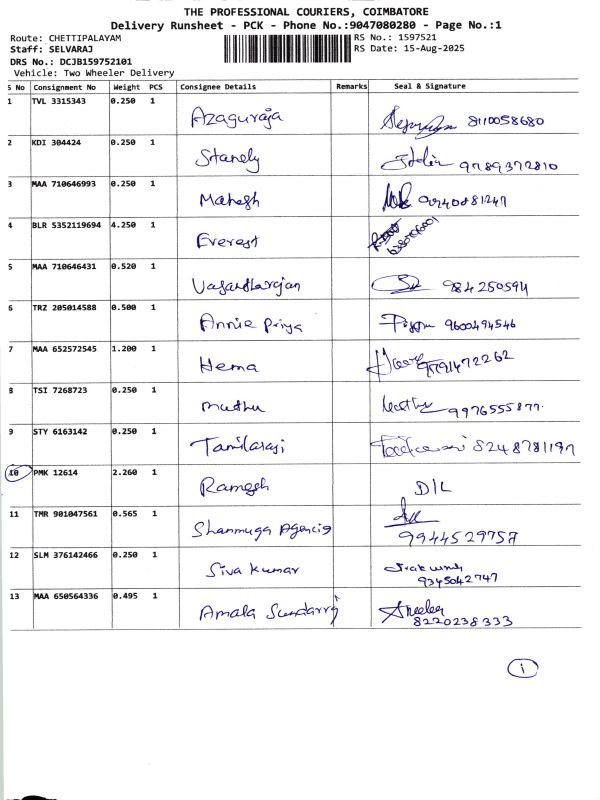 THE PROFESSIONAL COURIERS, COIMBATORE
Delivery Runsheet - PCK - Phone No.:9047080280 - Page No.:1
Route: CHETTIPALAYAM RS No.: 1597521
Staff: SELVARAJ RS Date: 15-Aug-2025
DRS No.: DCJB159752101
Vehicle: Two Wheeler Delivery
S No Consignment No Weight PCS Consignee Details Remarks Seal & Signature
1 TVL 3315343 0.250 1 Azaguraja 8110058680
2 KDI 304424 0.250 1 Stanely 9789372810
3 MAA 710646993 0.250 1 Mahesh 9940881247
4 BLR 5352119694 4.250 1 Everest
5 MAA 710646431 0.520 1 Vasantharajan 984250594
6 TRZ 205014588 0.500 1 Annie Priya 9600494546
7 MAA 652572545 1.200 1 Hema 9791472262
8 TSI 7268723 0.250 1 muthu 9976555877
9 STY 6163142 0.250 1 Tamilarasi 8248781197
10 PMK 12614 2.260 1 Ramesh D/L
11 TMR 901047561 0.565 1 Shanmuga Agencis 9944529757
12 SLM 376142466 0.250 1 Siva kumar
9345042747
13 MAA 650564336 0.495 1 Amala Sundarraj
8220238333
1